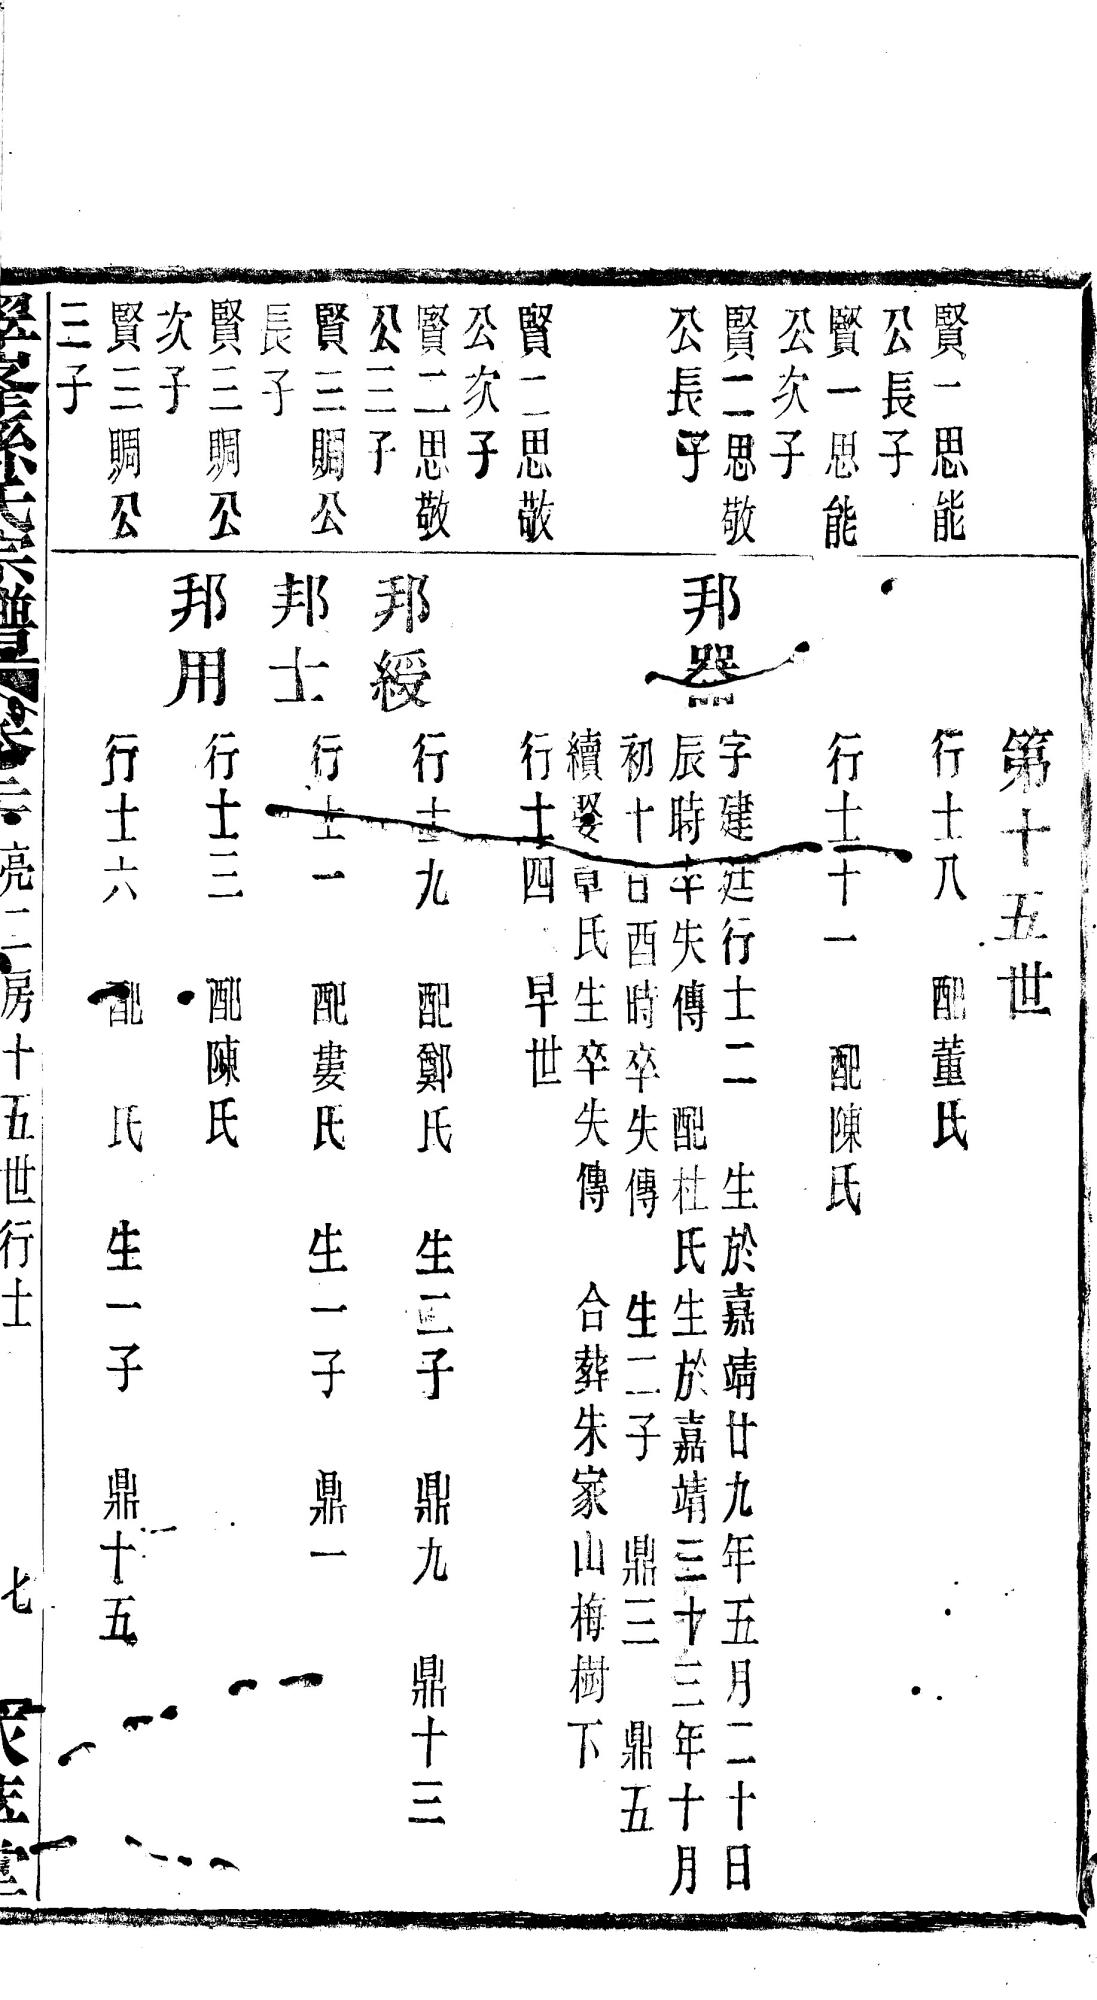 第十五世
賢一思能
公長子
行士八 配董氏
賢一思能
公次子
行士十一 配陳氏
賢二思敬
公長子
邦器
字建廷行士二 生於嘉靖廿九年五月二十日
辰時卒失傳 配杜氏生於嘉靖三十三年十月
初十日酉時卒失傳 生二子 鼎三 鼎五
續娶章氏生卒失傳 合葬朱家山梅樹下
賢二思敬
公次子
行士四 早世
賢二思敬
公三子
邦綬
行士九 配鄭氏 生二子 鼎九 鼎十三
賢三賙公
長子
邦士
行士一 配婁氏 生一子 鼎一
賢三賙公
次子
邦用
行士三 配陳氏
賢三賙公
三子
行士六 配 氏 生一子 鼎十五
孫氏宗譜 卷二 亮二房十五世行士 七 堂